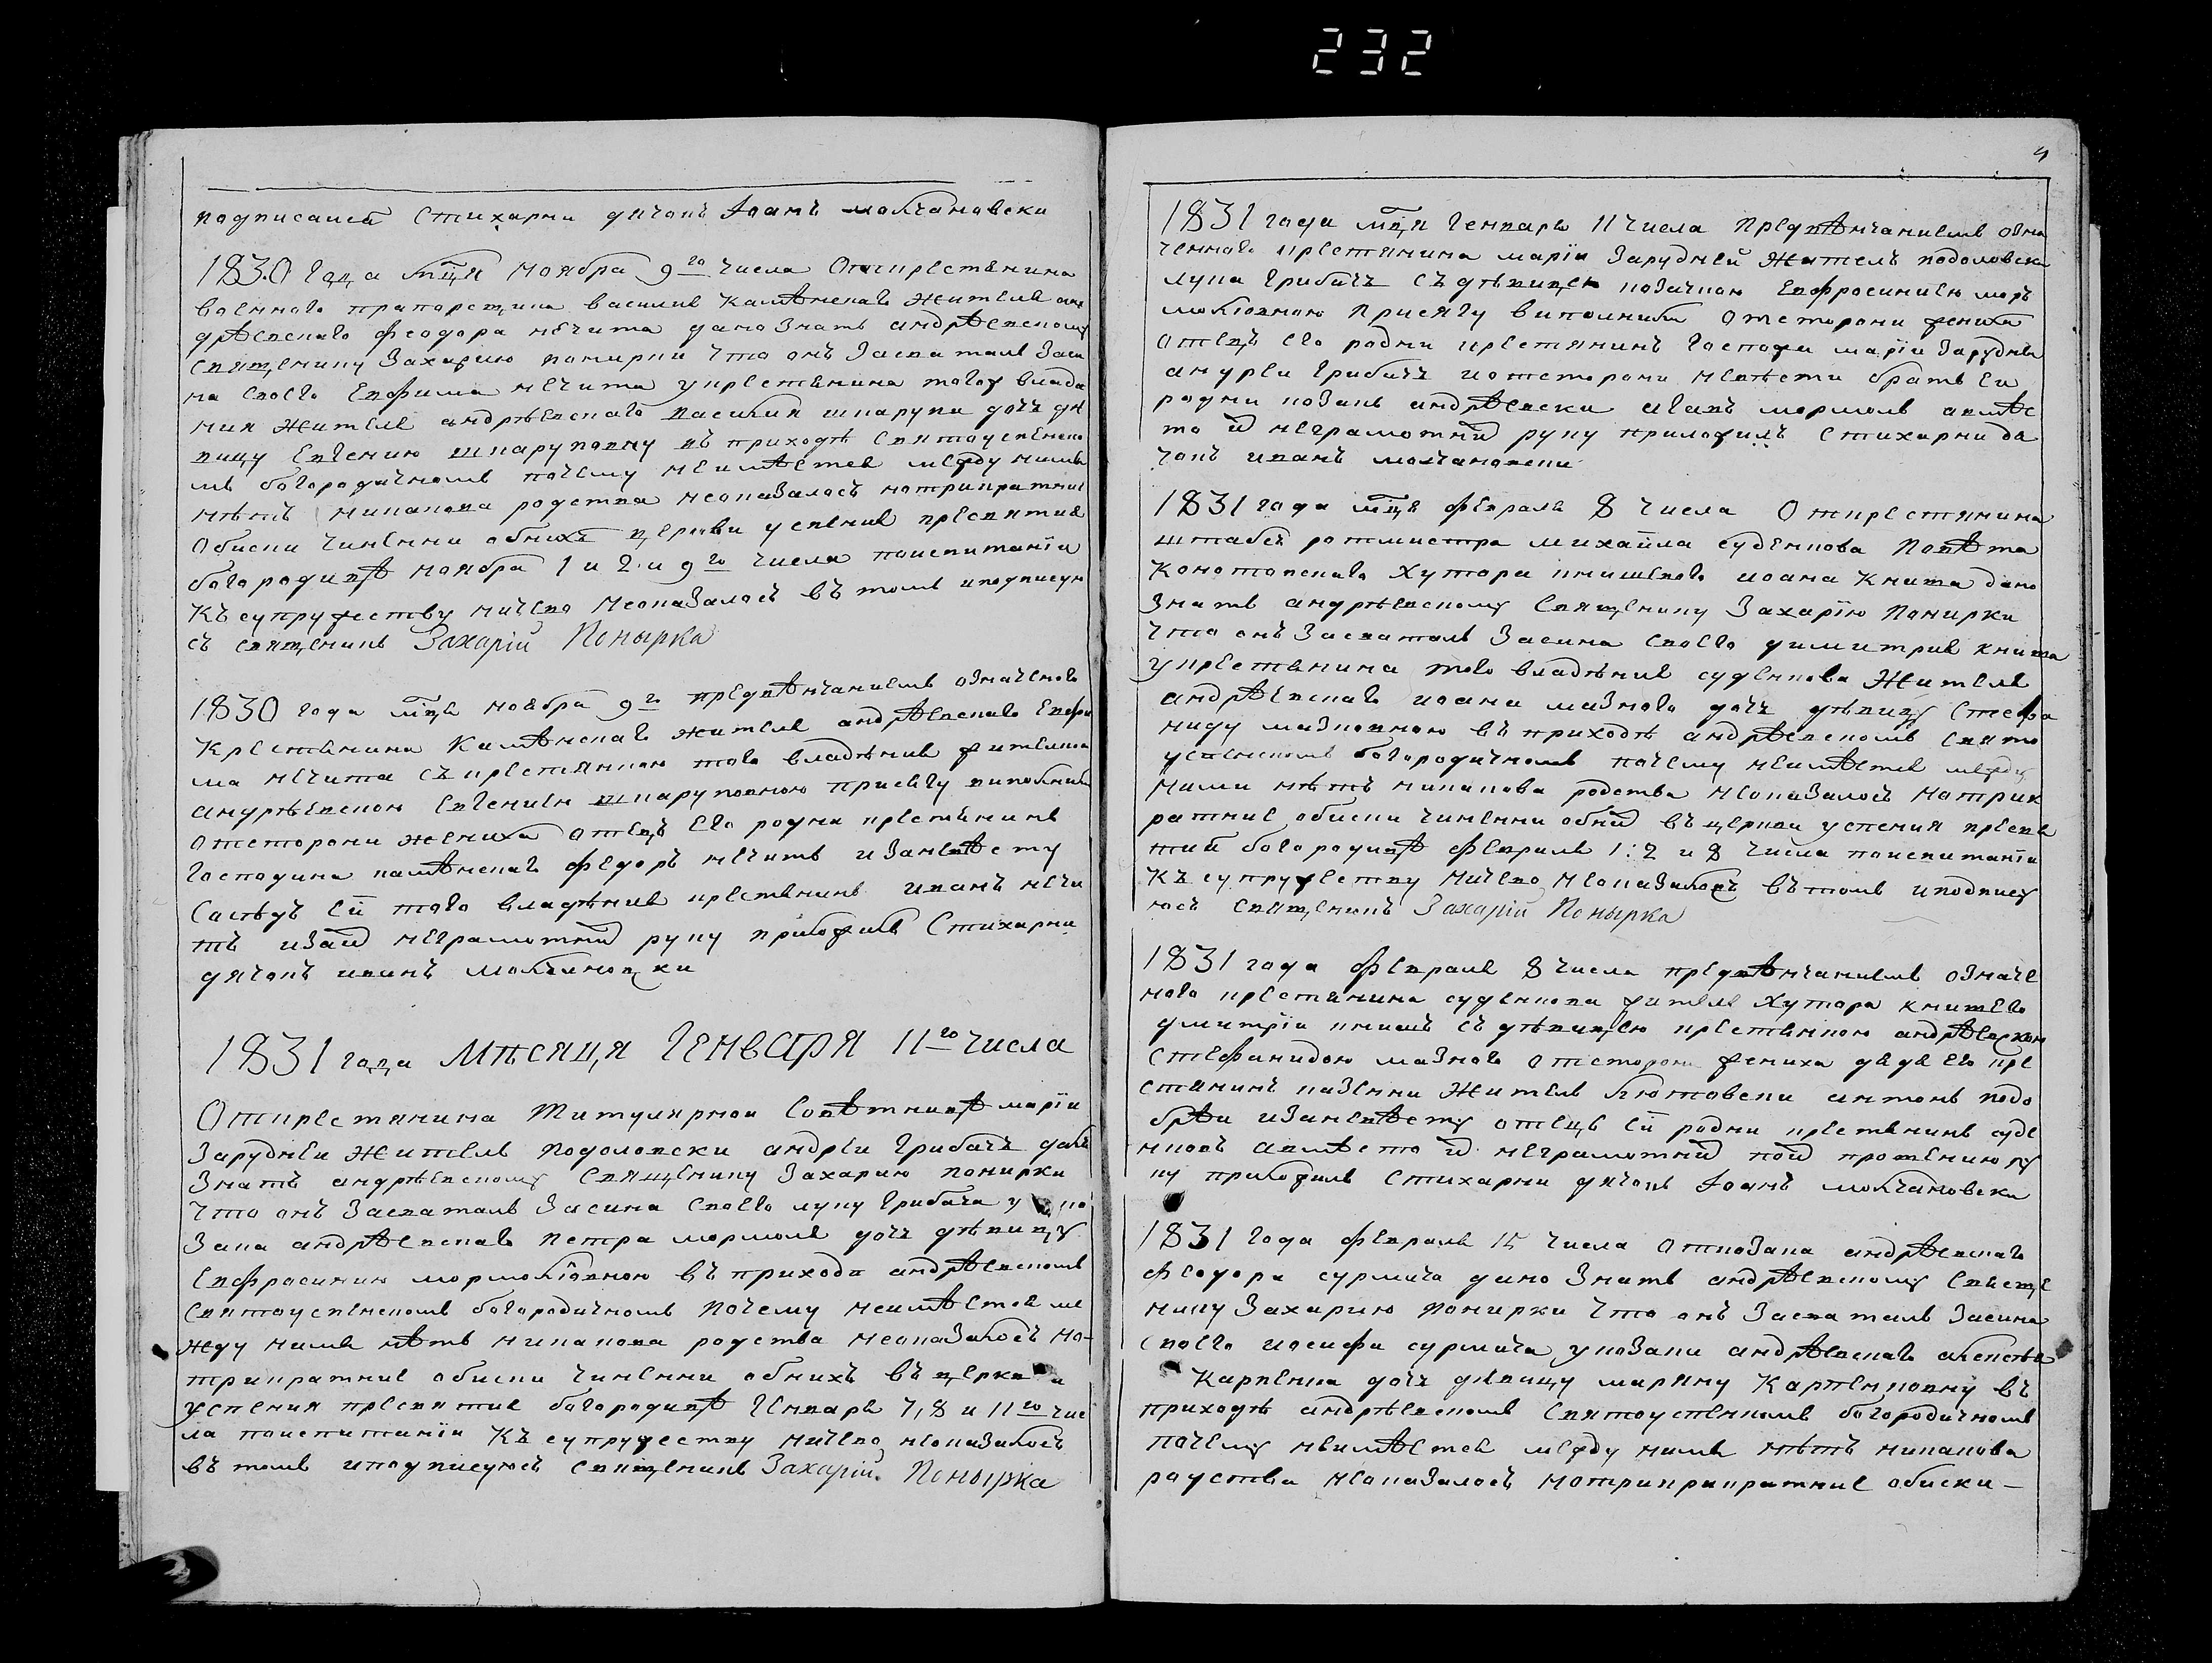 232
подписался Стихарни дячокъ Іоанъ молчановски
1830 года мця Ноября 9го числа Откристянина
военного прапорщика василия Камѣнскаго жителя ан
дрѣевскаго феодора нечита дано знать андрѣевскому
священику Захарию понирки что онъ Засваталъ Заси
на своего Евфима нечита укрестянина тогоу влада
ния жителя андрѣевскаго василия шкарупи дочъ дѣ
вицу Евгению шкаруповну въ приходѣ Святоуспенско
мъ богородичномъ почему неимѣетсе между ними
нѣтъ никакова родства неоказалось иотрикратние
обиски чинении обнихъ церкви успение пресвятия
богородицѣ ноября 1 и 2 и 9го числа поиспитанїи
Къ супружеству ничево неоказалось въ томъ иподписую
съ священикъ Захарїй Понырка
1830 года мця ноября 9го предвѣнчаниемъ означеного
Крестянина Камѣнскаго жителя андрѣевскаго Евфи
ма нечита съ крестянкою того владѣния жителкою
андрѣевскою Евгениею шкаруповною присягу виполнил
отсторони жениха отецъ его родни крестянинъ
Господина камѣнскаго федоръ нечитъ изаневѣсту
Сосѣдъ ей того владѣния крестянинъ иванъ нечи
тъ изаи неграмотни руку приложилъ Стихарни
дячокъ иванъ молчановски
1831 года Мѣсяця Генваря 11го числа
Открестянина Титулярнои совѣтницѣ марїи
Зарудней жителъ подоловски андреи Грибачъ далъ
знать андрѣевскому Священику Захарию понирки
что онъ Засваталъ Засина своего луку Грибача у ко
Зака андрѣевскаго петра мормоля дочъ дѣвицу
Евфросинию мормолювною въ приходѣ андрѣевскомъ
Святоуспенскомъ богородичномъ почему неимѣетсе ме
жду ними нѣтъ никакова родства неоказалось ио-
трикратние обиски чинении обнихъ въ церкви
успения пресвятие богородицѣ Генваря 7, 8 и 11го чис
ла поиспитанїи Къ супружеству ничево неоказалось
въ томъ иподписуюсъ священикъ Захарїй Понырка
4
1831 года мця Генваря 11 числа Предвѣнчаниемъ озна
ченного крестянина марїи Зарудней Жителъ подоловски
лука Грибачъ съ дѣвицею козачкою Евфросиниею мор
молювною присягу виполнилъ отсторони жениха
отецъ его родни крестянинъ Госпожи марїи Заруднеи
андреи Грибачъ иотсторони невѣсти братъ ей
родни козакъ андрѣевски яковъ мормоль авмѣс
то и неграмотни руку приложилъ стихарни дя
чокъ иванъ молчановски
1831 года мця февраля 8 числа Открестянина
штабсъ ротмистра михаила суденкова Повѣта
конотопскаго Хутора книшевого иоана Книша дано
Знать андрѣевскому Священику Захарїю Понирки
что онъ Засваталъ Засина своего димитрия книша
укрестянина того владѣния суденкова Жителя
андрѣевскаго иоана мазного дочъ дѣвицу Стефа
ниду мазновною въ приходѣ андрѣевскомъ Свято
успенскомъ богородичномъ почему неимѣетсе между
ними нѣтъ никакова родства неоказалось иотрик
ратние обиски чинении обни въ церкви успения пресвя
тий богородицѣ февраля 1: 2 и 8 числа поиспитанїи
къ супружеству ничево неоказалось въ томъ иподпису
юсъ священикъ Захарїй Понырка
1831 года февраля 8 числа предвѣнчаниемъ означе
ного крестянина суденкова жителя Хутора книшево
дмитрїи книшъ съ дѣвицею крестянкою андрѣевскою
Стефанидою мазного отсторони жениха дядя его кре
стянинъ казенни житель антонъ подо
изаневѣсту отецъ ей родни крестянинъ суде
нковъ авмѣсто и неграмотни пои прошению ру
ку приложилъ стихарни дячокъ Іоанъ молчановски
1831 года февраля 15 числа откозака андрѣевскаго
феодора сурмача дано Знать андрѣевскому Свяще
нику Захарию понирки что онъ Засваталъ Засина
своего иосифа сурмача укозака андрѣевскаго алексѣя
Карпенка дочъ дѣвицу маряну Карпенковну въ
приходѣ андрѣевскомъ Святоуспенскомъ богородичномъ
почему неимѣетсе между ними нѣтъ никакова
родства неоказалось иотрикрикратние обиски-